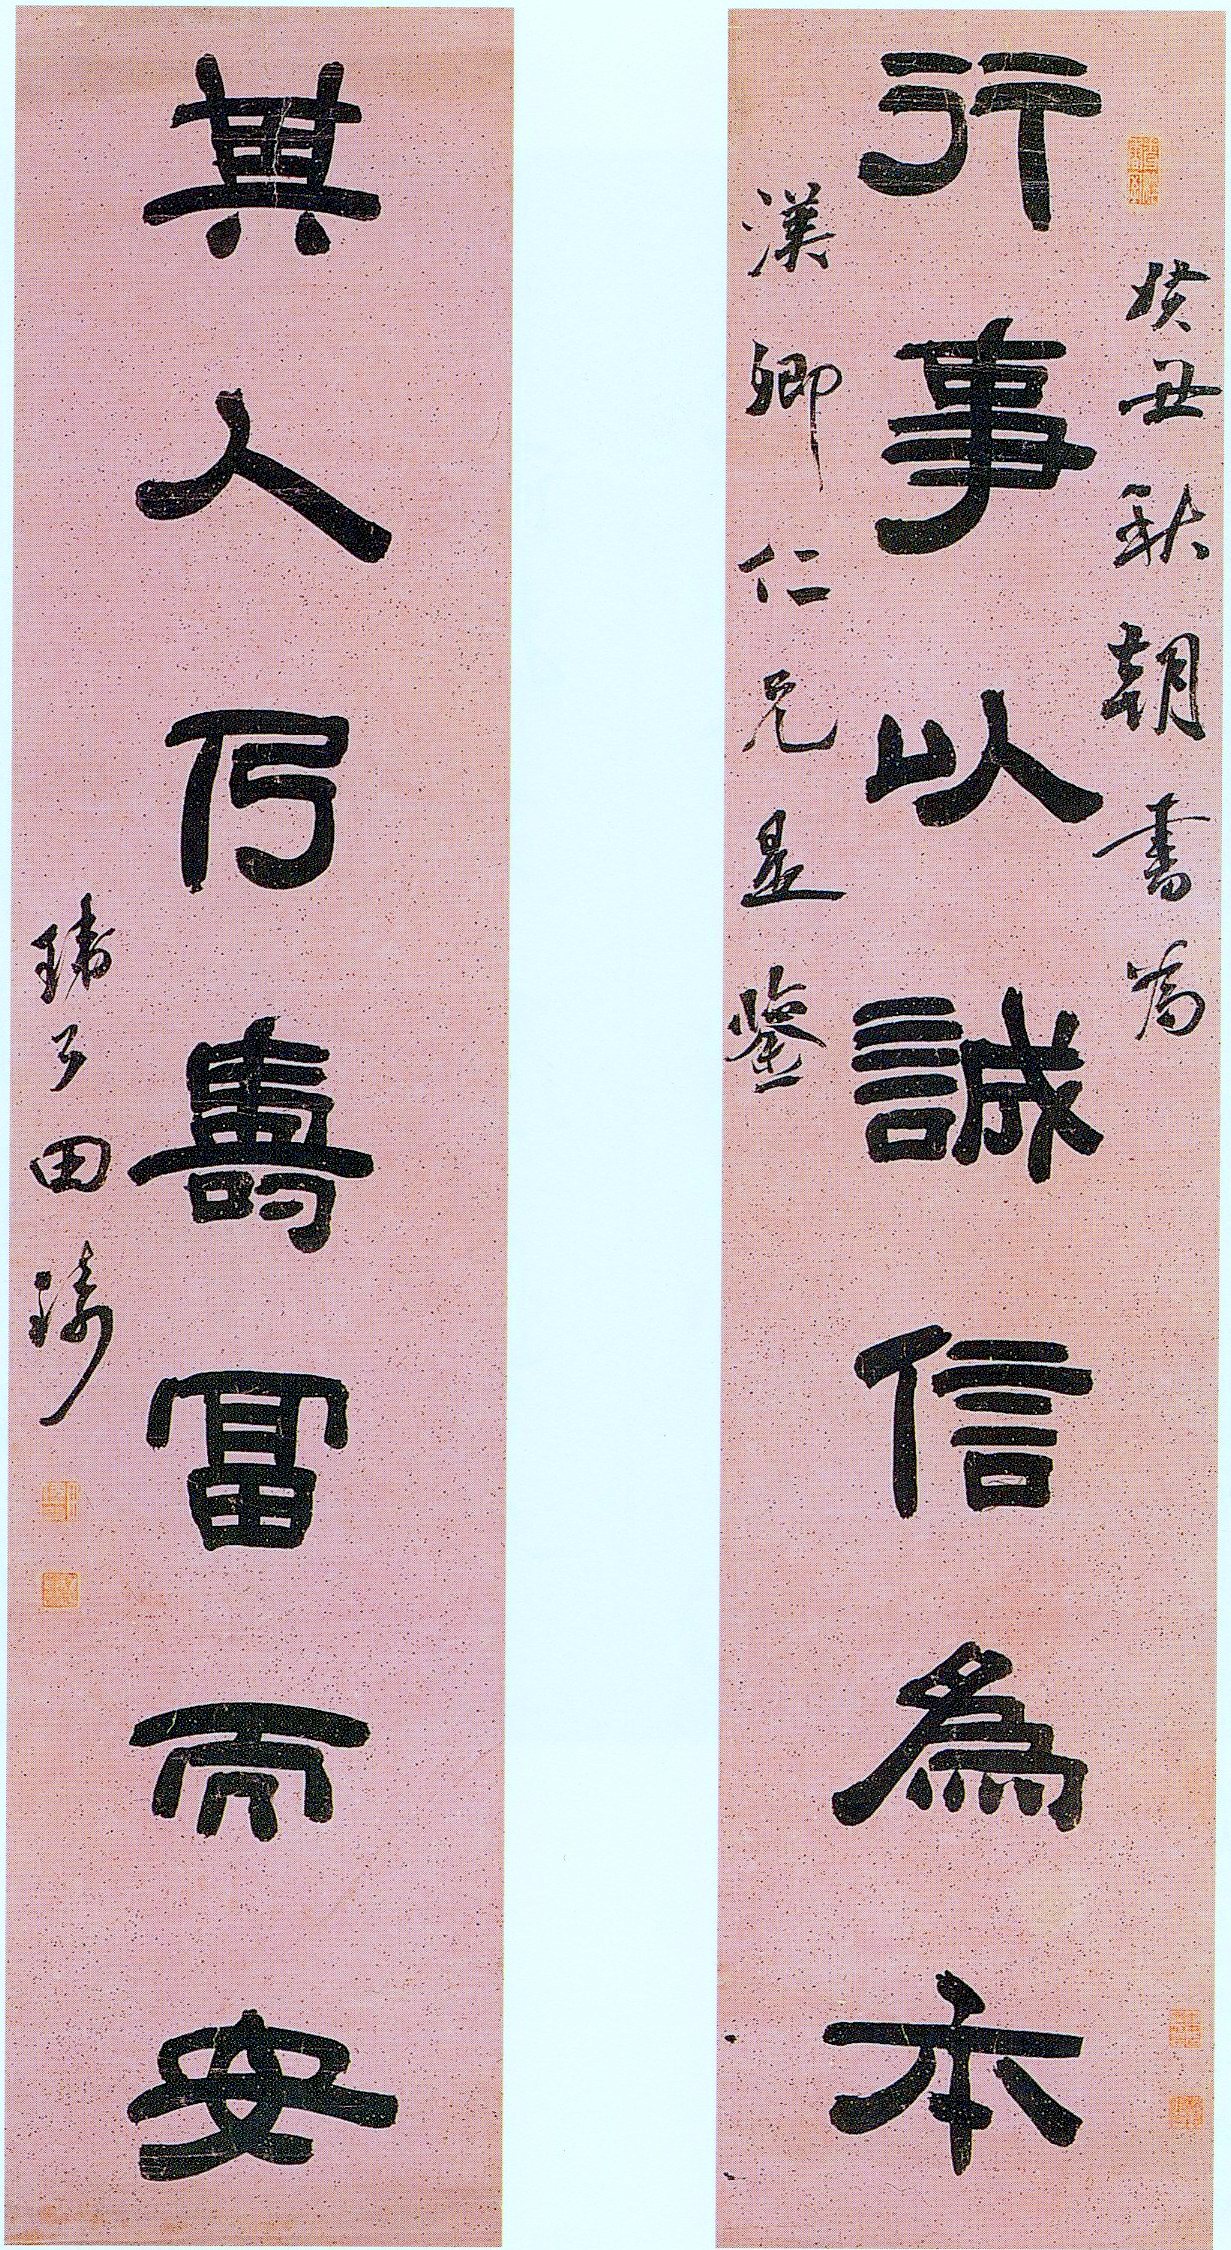 癸丑秋朝書為
行事以誠信為本
漢卿仁兄是鑒
其人乃壽冨而安
田